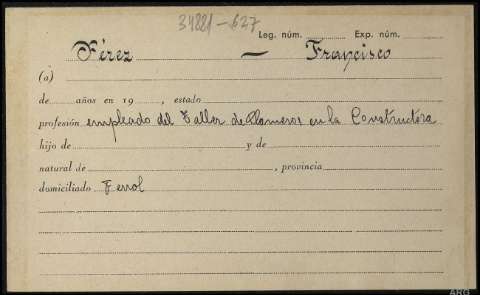 34881-627
Leg. núm. Exp. núm.
Pérez — Francisco
(a)
de años en 19 , estado
profesión empleado del Taller de Plomeros en la Constructora
hijo de y de
natural de , provincia
domiciliado Ferrol
ARG